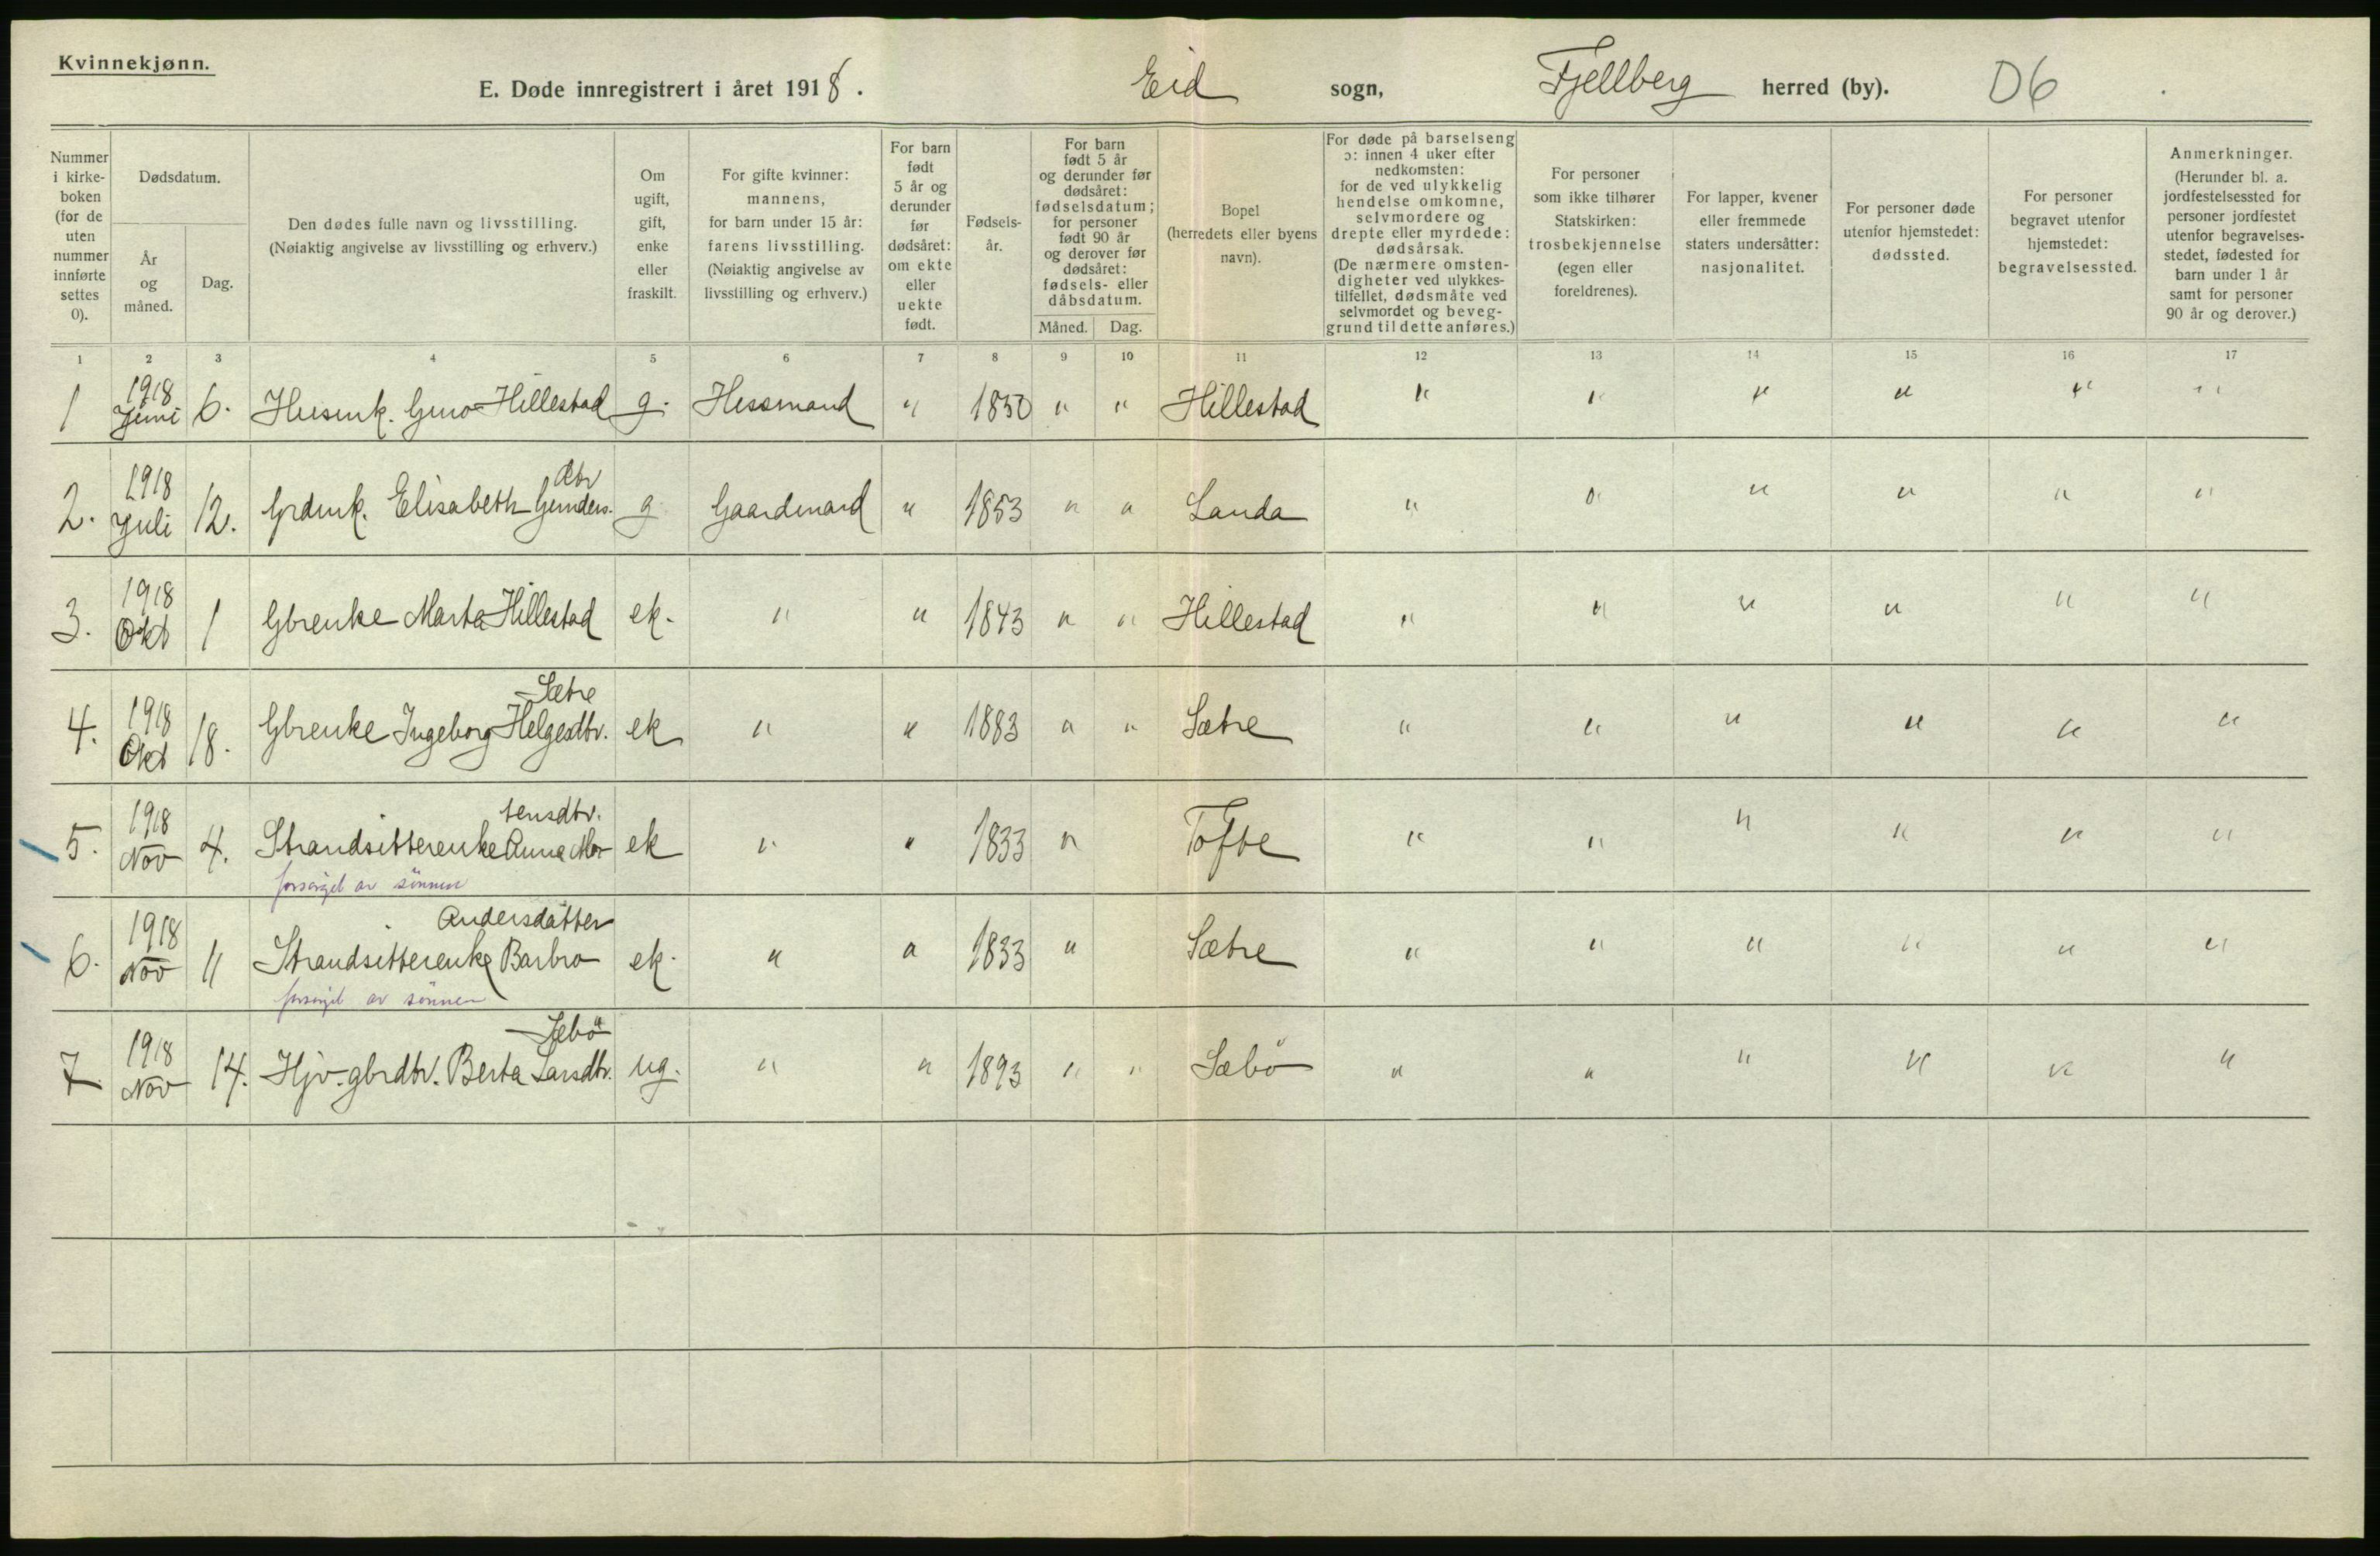 Kvinnekjønn.
E. Døde innregistrert i året 1918. Eid sogn, Fjellberg herred (by). D6
Nummer i kirke-boken (for de uten nummer innførte settes 0).
Dødsdatum.
År og måned.
Dag.
Den dødes fulle navn og livsstilling.
(Nøiaktig angivelse av livsstilling og erhverv.)
Om ugift, gift, enke eller fraskilt.
For gifte kvinner: mannens, for barn under 15 år: farens livsstilling. (Nøiaktig angivelse av livsstilling og erhverv.)
For barn født 5 år og derunder før dødsåret: om ekte eller uekte født.
Fødsels-år.
For barn født 5 år og derunder før dødsåret: fødselsdatum; for personer født 90 år og derover før dødsåret: fødsels- eller dåbsdatum.
Måned. Dag.
Bopel (herredets eller byens navn).
For døde på barselseng ɔ: innen 4 uker efter nedkomsten: for de ved ulykkelig hendelse omkomne, selvmordere og drepte eller myrdede: dødsårsak. (De nærmere omsten-digheter ved ulykkes-tilfellet, dødsmåte ved selvmordet og beveg-grund til dette anføres.)
For personer som ikke tilhører Statskirken: trosbekjennelse (egen eller foreldrenes).
For lapper, kvener eller fremmede staters undersåtter: nasjonalitet.
For personer døde utenfor hjemstedet: dødssted.
For personer begravet utenfor hjemstedet: begravelsessted.
Anmerkninger. (Herunder bl. a. jordfestelsessted for personer jordfestet utenfor begravelses-stedet, fødested for barn under 1 år samt for personer 90 år og derover.)
1 2 3 4 5 6 7 8 9 10 11 12 13 14 15 16 17
1 1918 Juni 6. Husmk. Guro Hillestad g. Hussmand " 1850 " " Hillestad " " " " " "
dtr
2. 1918 Juli 12. Grdmk. Elisabeth Gunders. g Gaardmand " 1853 " " Landa " " " " " "
3. 1918 Okt 1 Gbrenke Marta Hillestad ek. " " 1843 " " Hillestad " " " " " "
Sætre
4. 1918 Okt 18. Gbrenke Ingeborg Helgesdtr. ek " " 1883 " " Sætre " " " " " "
tensdtr.
5. 1918 Nov 4. Strandsitterenke Anna Mor- ek " " 1833 " Tofte " " " " " "
forsørget av sönnen
Andersdatter
6. 1918 Nov 11 Strandsitterenke Barbro ek. " " 1833 " Sætre " " " " " "
forsörget av sönnen
Sæbö
7 1918 Nov 14. Hjv. gbrdtr. Berta Larsdtr. ug. " " 1893 " " Sæbö " " " " " "